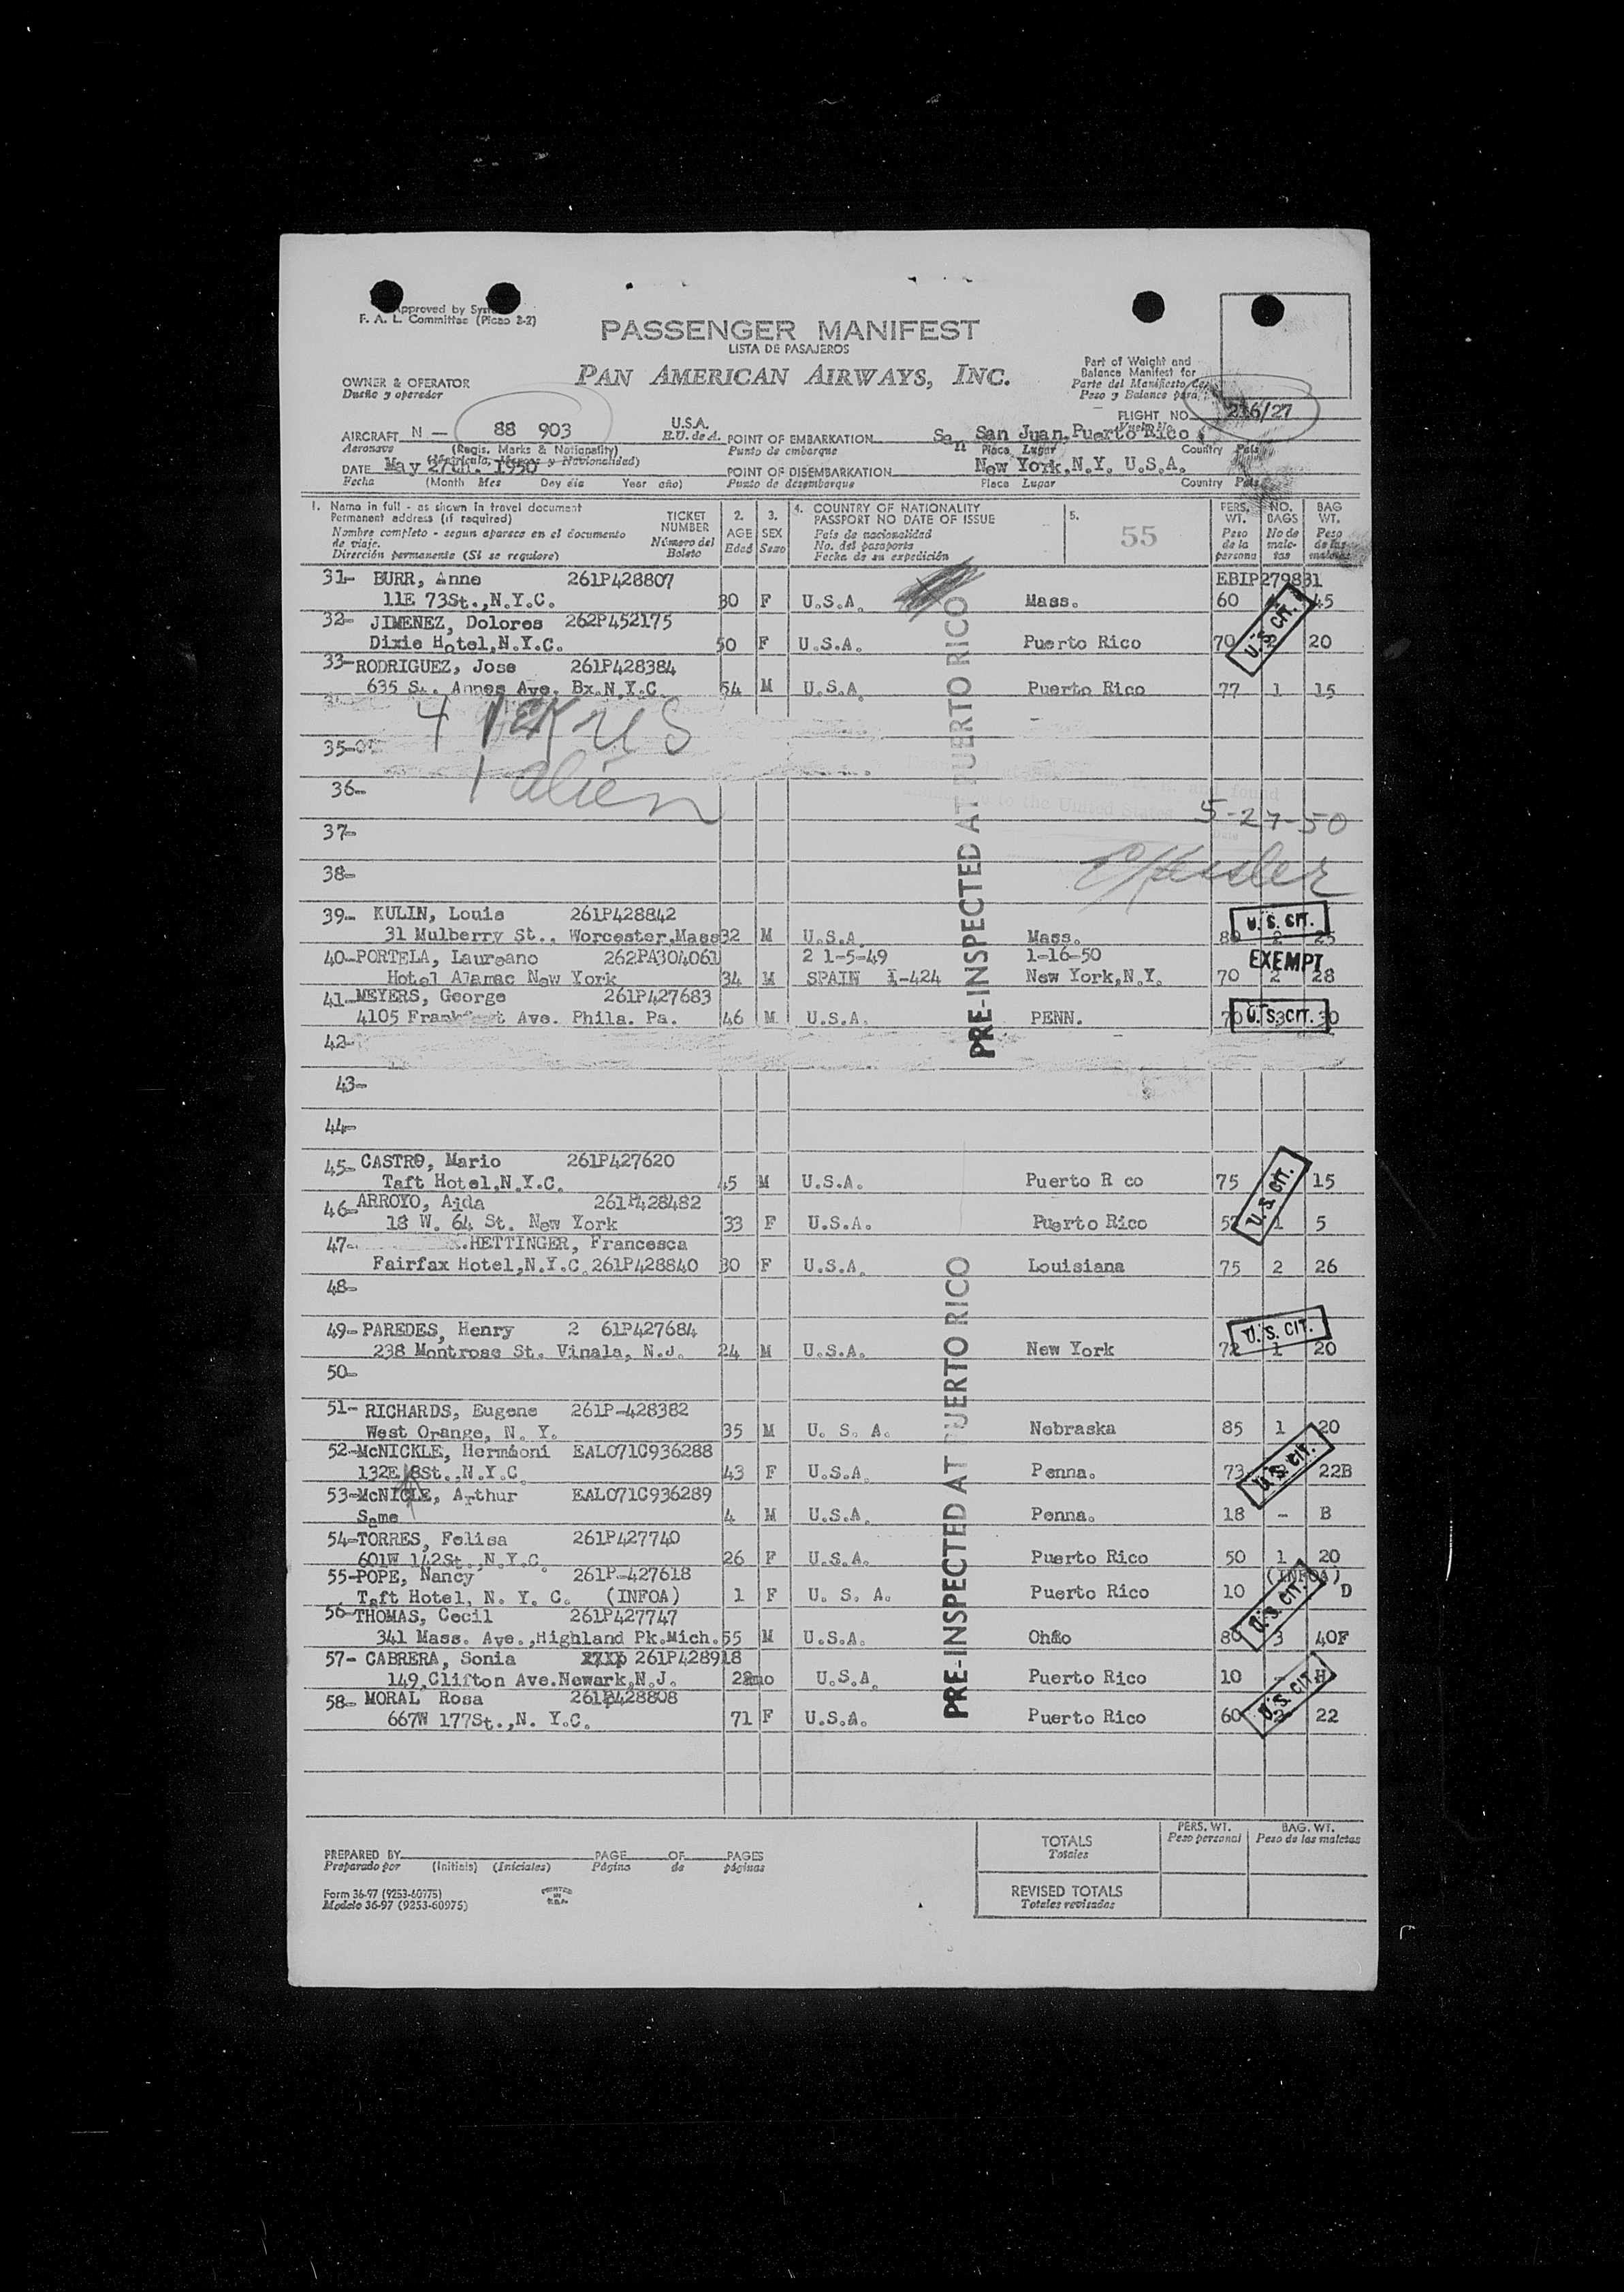 Approved by
F. A. L. Committee (Picao 2-2)
PASSENGER MANIFEST
LISTA DE PASAJEROS
PAN AMERICAN AIRWAYS, INC.
OWNER & OPERATOR
Dueño y operador
Part of Weight and
Balance Manifest for
Parte del Manifiesto de
Peso y Balance para
FLIGHT NO. 216/27
Vuelo No.
AIRCRAFT N — 88 903 U.S.A. E.U. de A.
Aeronave (Regis. Marks & Nationality)
(Matricula, Marcas y Nacionalidad)
POINT OF EMBARKATION San San Juan, Puerto Rico
Punto de embarque Place Lugar Country Pais
DATE May 27th. 1950
Fecha (Month Mes Day dia Year año)
POINT OF DISEMBARKATION New York,N.Y. U.S.A.
Punto de desembarque Place Lugar Country Pais
1. Name in full - as shown in travel document
Permanent address (if required)
Nombre completo - segun aparece en el documento
de viaje.
Dirección permanente (Si se requiere)
TICKET NUMBER
Número del Boleto
2. AGE Edad
3. SEX Sexo
4. COUNTRY OF NATIONALITY
PASSPORT NO DATE OF ISSUE
Pais de nacionalidad
No. del pasaporte
Fecha de su expedición
5. 55
PERS. WT. Peso de la persona
NO. BAGS No de maletas
BAG WT. Peso de las maletas
31- BURR, Anne 261P428807 EBIP279831
11E 73St.,N.Y.C. 30 F U.S.A. Mass. 60 45
32- JIMENEZ, Dolores 262P452175
Dixie Hotel,N.Y.C. 50 F U.S.A. Puerto Rico 70 20
U.S. CIT.
33- RODRIGUEZ, Jose 261P428384
635 St. Annes Ave. Bx.N.Y.C. 54 M U.S.A. Puerto Rico 77 1 15
4 US
35-
1 alien
36-
and found
to the United States
5-27-50
37-
38-
PRE-INSPECTED AT PUERTO RICO
39- KULIN, Louis 261P428842
31 Mulberry St., Worcester,Mass 32 M U.S.A. Mass. 80 2 25
U.S. CIT.
40- PORTELA, Laureano 262PA304061 2 1-5-49 1-16-50
EXEMPT
Hotel Alamac New York 34 M SPAIN I-424 New York,N.Y. 70 2 28
41- MEYERS, George 261P427683
4105 Frankfort Ave. Phila. Pa. 46 M U.S.A. PENN. 70 3 30
U.S. CIT.
42-
43-
44-
45- CASTRO, Mario 261P427620
Taft Hotel,N.Y.C. 45 M U.S.A. Puerto R co 75 15
46- ARROYO, Aida 261P428482
18 W. 64 St. New York 33 F U.S.A. Puerto Rico 57 1 5
U.S. CIT.
47- HETTINGER, Francesca
Fairfax Hotel,N.Y.C. 261P428840 30 F U.S.A. Louisiana 75 2 26
48-
49- PAREDES, Henry 2 61P427684
238 Montrose St. Vinala, N.J. 24 M U.S.A. New York 72 1 20
U.S. CIT.
50-
51- RICHARDS, Eugene 261P-428382
West Orange, N. Y. 35 M U. S. A. Nebraska 85 1 20
52- McNICKLE, Hermioni EAL071C936288
132E 8St.,N.Y.C. 43 F U.S.A. Penna. 73 22B
U.S. CIT.
53- McNICLE, Arthur EAL071C936289
Same 4 M U.S.A. Penna. 18 - B
54- TORRES, Felisa 261P427740
601W 142St.,N.Y.C. 26 F U.S.A. Puerto Rico 50 1 20
55- POPE, Nancy 261P-427618 (INFOA)
Taft Hotel, N. Y. C. (INFOA) 1 F U. S. A. Puerto Rico 10 D
U.S. CIT.
56- THOMAS, Cecil 261P427747
341 Mass. Ave.,Highland Pk.Mich. 55 M U.S.A. Ohio 80 3 40F
57- CABRERA, Sonia 261P428918
149,Clifton Ave.Newark,N.J. 22mo U.S.A. Puerto Rico 10 - H
58- MORAL Rosa 261P428808
667W 177St.,N. Y.C. 71 F U.S.A. Puerto Rico 60 22
U.S. CIT.
PRE-INSPECTED AT PUERTO RICO
PREPARED BY PAGE OF PAGES
Preparado por (Initials) (Iniciales) Página de páginas
TOTALS
Totales
PERS. WT.
Peso personal
BAG. WT.
Peso de las maletas
REVISED TOTALS
Totales revisados
Form 36-97 (9253-60975)
Modelo 36-97 (9253-60975)
PRINTED IN U.S.A.